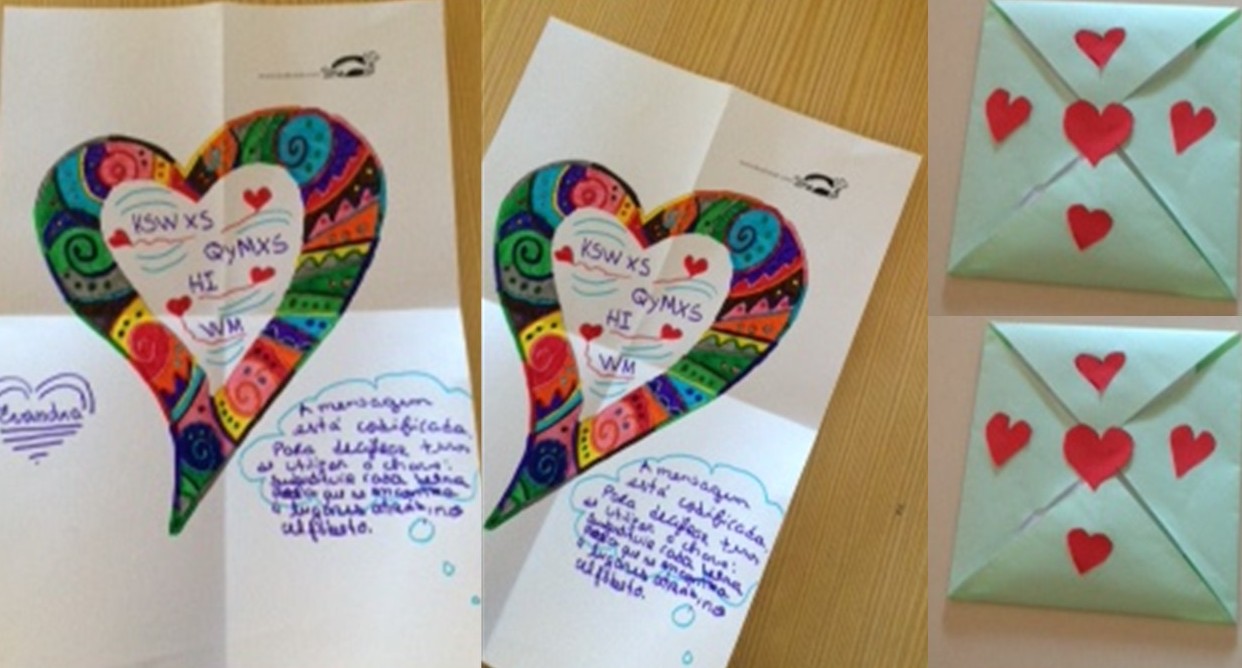 KSWXS
QyMXS
HI
WM
A mensagem
está codificada.
Para decifrar tens
de utilizar a chave:
cada letra
que se encontra
lugares atrás, no
alfabeto.
KSWXS
QyMXS
HI
WM
A mensagem
está codificada.
Para decifrar tens
de utilizar a chave:
cada letra
que se encontra
lugares atrás, no
alfabeto.